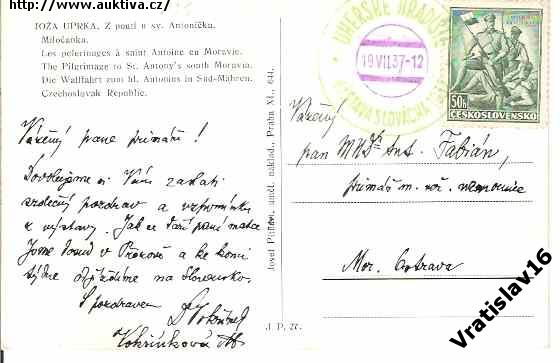 http://www.auktiva.cz/
JOŽA UPRKA. Z pouti u sv. Antoníčka.
Miločanka.
Les pelerinages à saint Antoine en Moravie.
The Pilgrimage to St. Antony's south Moravia.
Die Wallfahrt zum hl. Antonius in Süd-Mähren.
Czechoslovak Republic.
Vážený pane primáři!
Dovolujeme si Vám zaslati
srdečný pozdrav a vzpomínku
z výstavy. Jak se daří paní matce
Jsme dosud v a ke konci
týdne odjíždíme na Slovensko.
S pozdravem
Vokřínková
Josef Pithart, uměl. náklad., Praha XI., 644.
J. P. 27.
UHERSKÉ HRADIŠTĚ
19.VII.37-12
VÝSTAVA SLOVÁCKA
50h
ČESKOSLOVENSKO
Vážený
pan MUDr Ant. Fabián,
primář nemocnice
Mor. Ostrava
Vratislav16